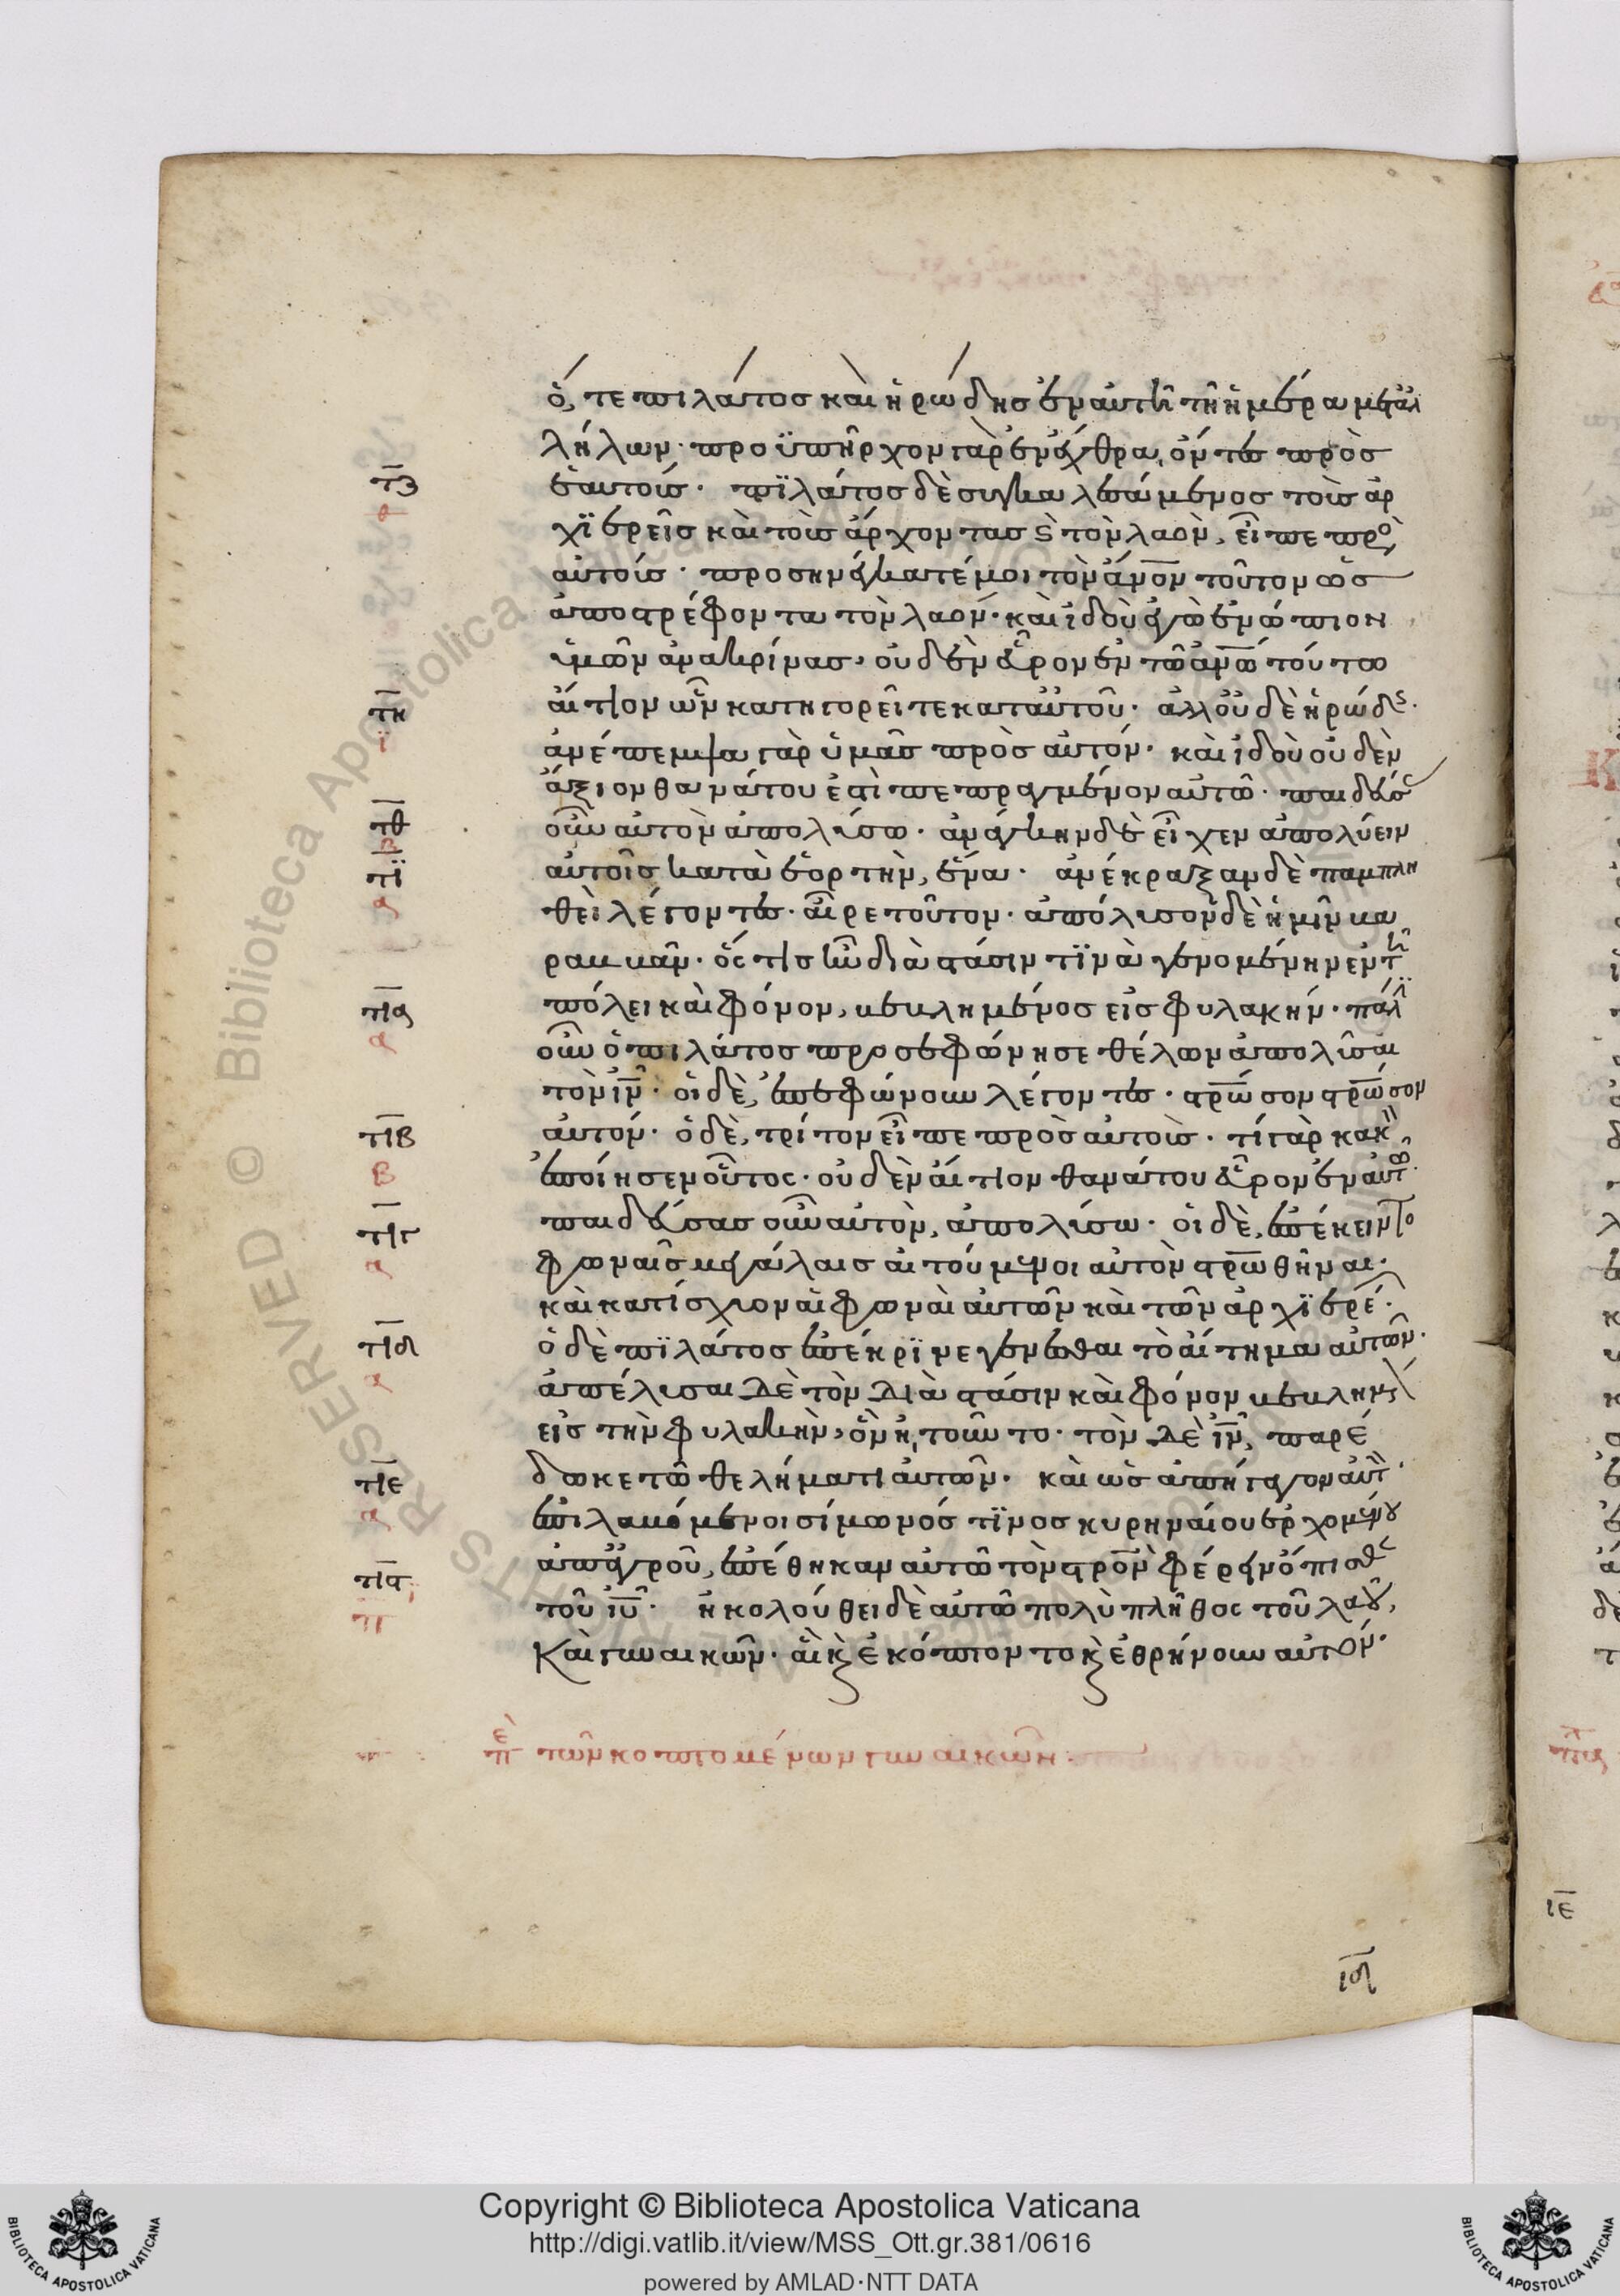 ὅ, τε πιλάτος καὶ ἡρώδης ἐν αὐτῆ τῆ ἡμέρα μεταλ
λήλων· προϋπῆρχον γὰρ ἐν ἔχθρα, ὄντες πρὸς
ἑαυτούς· πϊλάτος δὲ συγκαλεσάμενος τοὺς ἀρ
χϊερεῖς καὶ τοὺς ἄρχοντας ϛ τὸν λαὸν, εἶπε πρὸ
αὐτούς· προσηνέγκατέ μοι τὸν ἄν̅ο̅ν τοῦτον ὡς
ἀποστρέφοντα τὸν λαόν· καὶ ἰδοὺ ἐγὼ ἐνώπιον
ὑμῶν ἀνακρίνας, οὐδὲν εὗρον ἐν τῶ ἀν̅ω̅ τούτω
αἴτιον ὧν κατηγορεῖτε κατ αὐτοῦ· ἀλλ οὐδὲ ἡρώδς·
ἀνέπεμψα γὰρ ὑμᾶς πρὸς αὐτόν· καὶ ἰδοὺ οὐδὲν
ἄξιον θανάτου ἐστὶ πεπραγμένον αὐτῶ· παιδεύσ
οὖν αὐτὸν ἀπολύσω· ἀνάγκην δὲ εἶχεν ἀπολύειν
αὐτοῖς κατὰ ἑορτὴν, ἕνα· ἀνέκραξαν δὲ παμπλη
θεὶ λέγοντες· αἶρε τοῦτον· ἀπόλυσον δὲ ἡμῖν βα
ραββᾶν· ὅς τις ἦν διὰ στάσιν τϊνὰ γενομένην ἐν τῆ
πόλει καὶ φόνον, βεβλημένος εἰς φυλακήν· πάλϊ
οὖν ὁ πιλάτος προσεφώνησε θέλων ἀπολῦσαι
τὸν ἰ̅ν̅· οἱ δὲ, ἐπεφώνουν λέγοντες· στρ̅ω̅σον στρ̅ω̅σον
αὐτόν· ὁ δὲ, τρίτον εἶπε πρὸς αὐτοὺς· τί γὰρ κακ
ἐποίησεν οὗτος· οὐδὲν αἴτιον θανάτου εὗρον ἐν αὐτ
παιδεύσας οὖν αὐτὸν, ἀπολύσω· οἱ δὲ, ἐπέκειντο
φωναῖς μεγάλαις αἰτούμενοι αὐτὸν στρ̅ω̅θῆναι·
καὶ κατίσχυον αἱ φωναὶ αὐτῶν καὶ τῶν ἀρχϊερέ·
ὁ δὲ πϊλάτος ἐπέκρϊνε γενέσθαι τὸ αἴτημα αὐτῶν·
ἀπέλυσαι δὲ τὸν διὰ στάσιν καὶ φόνον βεβλημ
εἰς τὴν φυλακὴν, ὃν ἠτοῦντο· τὸν δὲ ἰ̅ν̅, παρέ
δωκε τῶ θελήματι αὐτῶν· καὶ ὡς ἀπήγαγον αὐτ·
ἐπιλαβόμενοι σίμωνός τϊνος κυρηναίου ἐρχομένου
ἀπ ἀγροῦ, ἐπέθηκαν αὐτῶ τὸν στρ̅ο̅ν φέρειν ὄπισθ
τοῦ ἰ̅υ̅· ἠκολούθει δὲ αὐτῶ πολὺ πλῆθος τοῦ λαοῦ,
Καὶ γυναικῶν· αἳ κ ἐκόπτοντο κ ἐθρήνουν αὐτόν·
τζ
α
τη
ϊ
τθ
τι
α
τια
α
τιβ
β
τιγ
α
τιδ
α
τιε
α
τιϛ
πε τῶν κοπτομένων γυναικῶν
ιδ
ιε
Copyright © Biblioteca Apostolica Vaticana
http://digi.vatlib.it/view/MSS_Ott.gr.381/0616
powered by AMLAD·NTT DATA
BIBLIOTECA APOSTOLICA VATICANA
BIBLIOTECA APOSTOLICA VATICANA